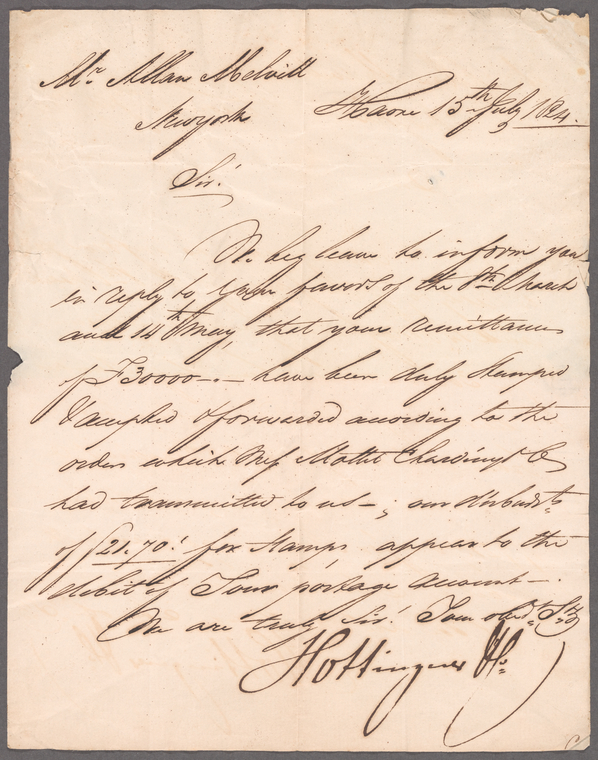 Mr. Allan Melvill
Newyork
Havre 15th July 1824.
Sir!
We beg leave to inform you
in reply to your favors of the 8th March
and 14th May, that your remittances
of F 30000—.— have been duly Stamped
& accepted & forwarded according to the
orders which Mess Chardiny & Co
had transmitted to us—; our disbursts
of f 21.70! for Stamps appears to the
debit of Your postage account—.
We are truly Sir! Your obedt. St.
Hottinguer & Co.